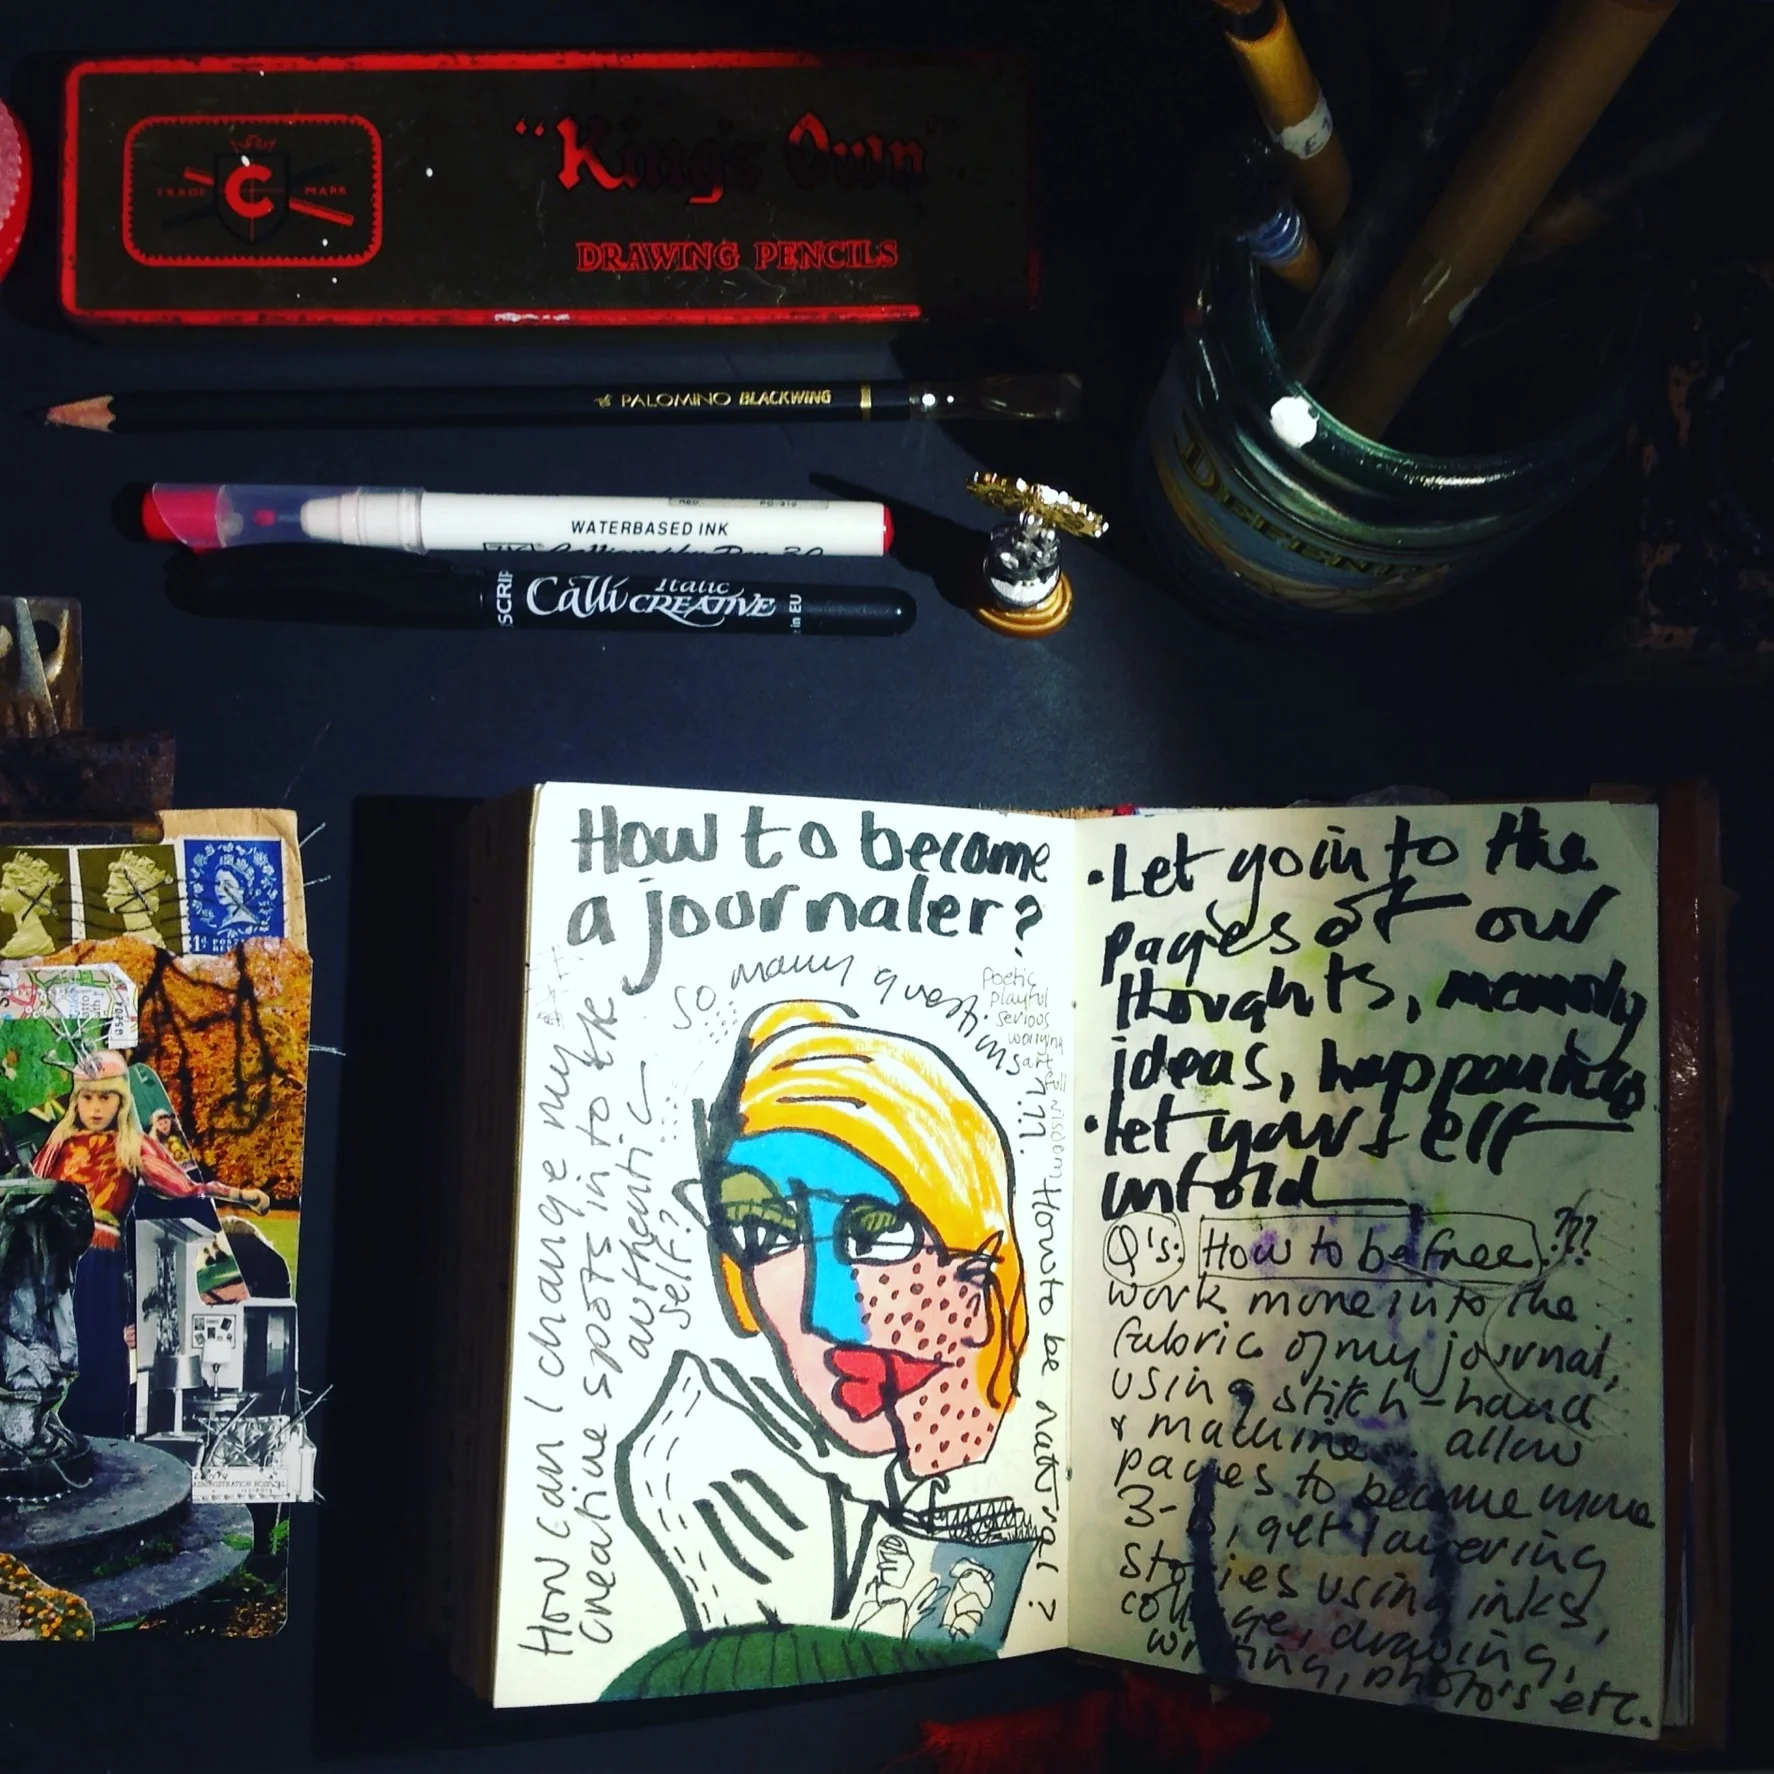 "King's Own"
TRADE C MARK
DRAWING PENCILS
PALOMINO BLACKWING
WATERBASED INK
Calli Italic
CREATIVE
in EU
How to become
a journaler?
So many questions ???
Poetic
playful
serious
worrying
artfull
wisdom
How to be natural?
How can I change my
creative spots in to the
authentic
self?
• Let go in to the
pages of our
thoughts, memory
ideas, happenings
• let yourself
unfold
Q's: How to be free ???
work more into the
fabric of my journal,
using stitch-hand
& machine. allow
pages to become more
3-D, get layering
stories using inks,
collage, drawing,
writing, photos etc.